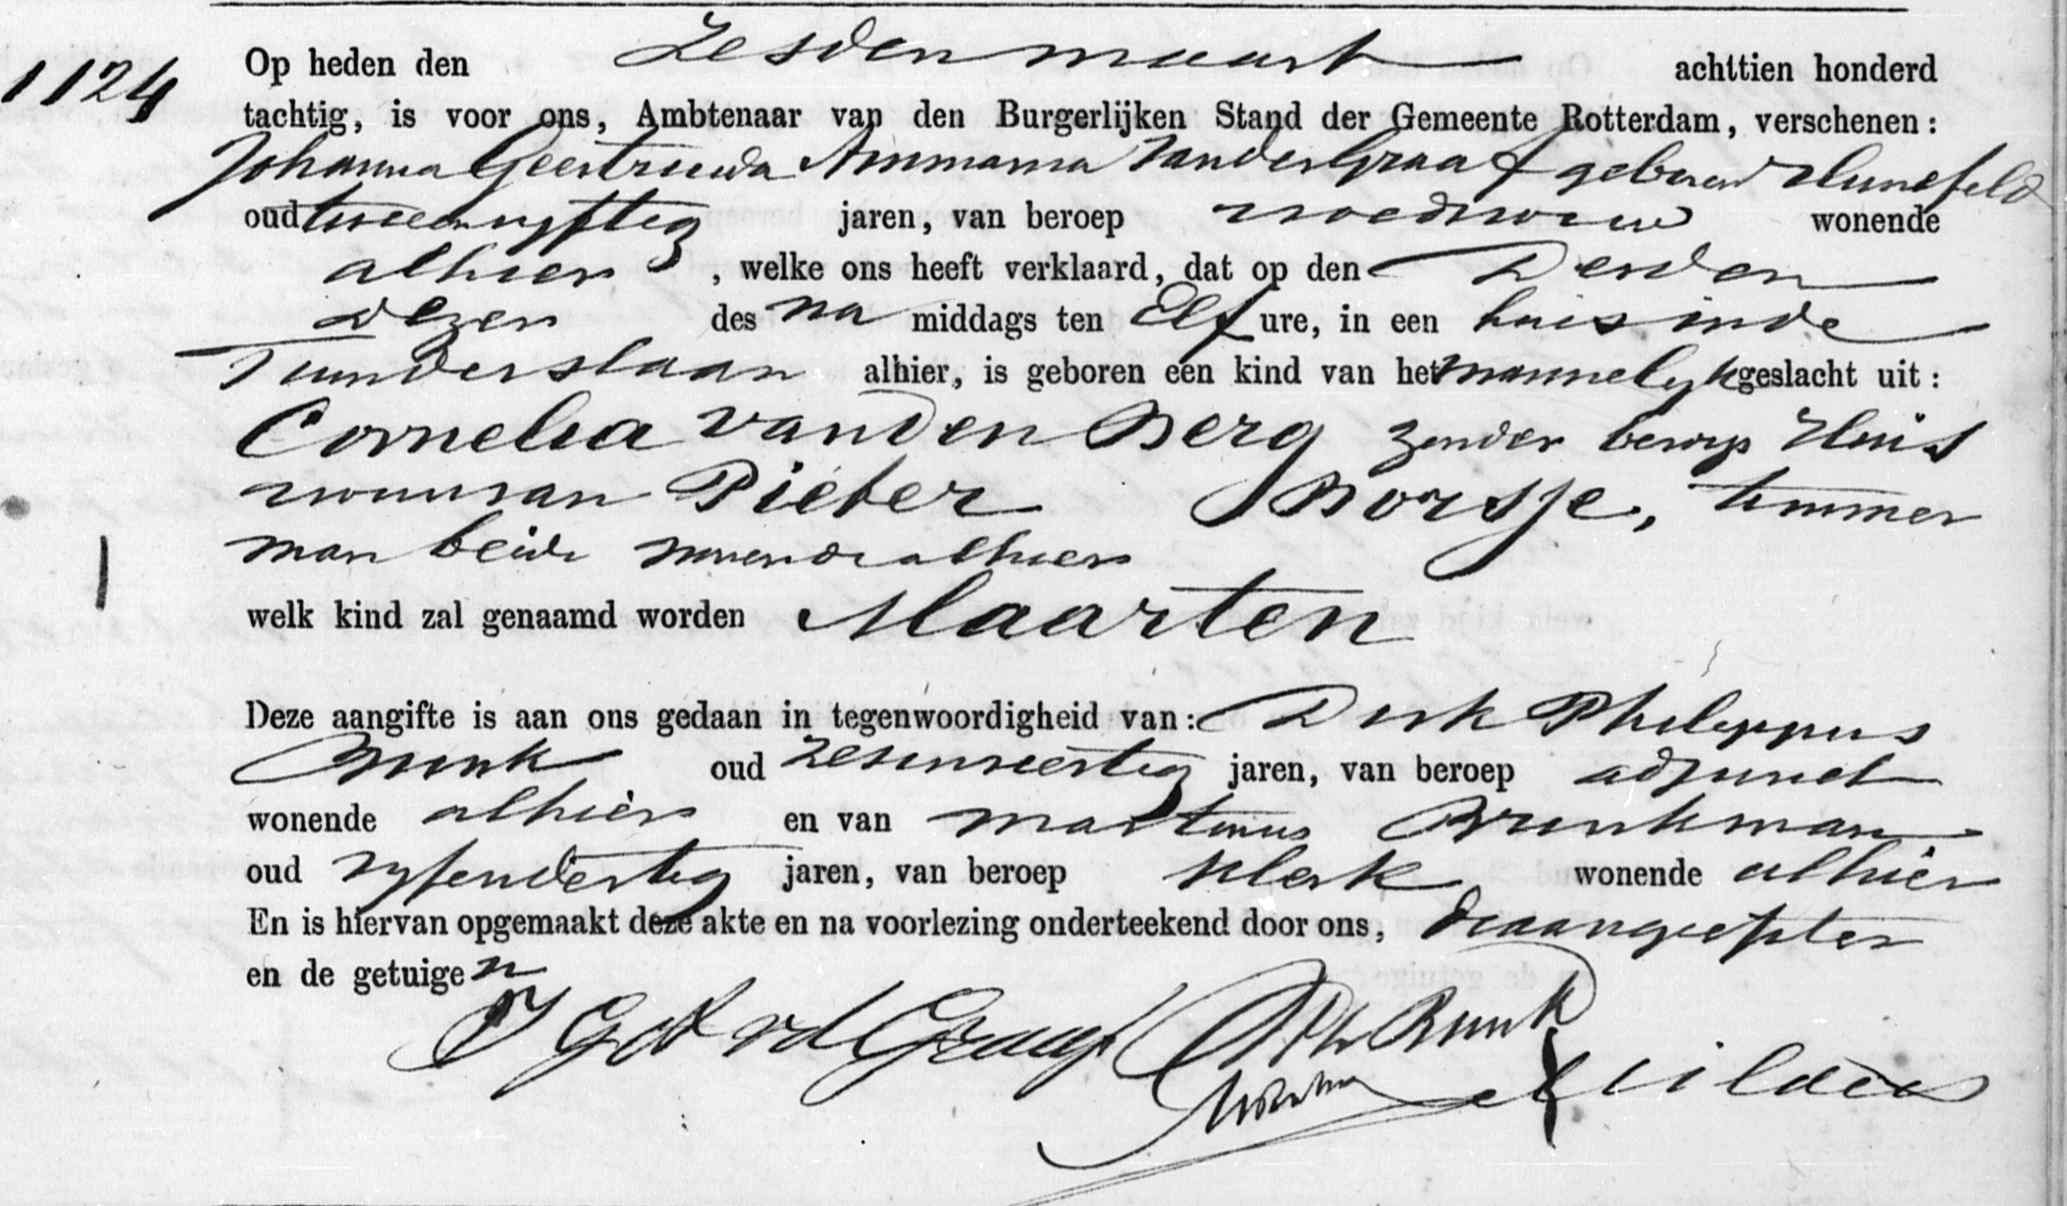 1124
Op heden den Zesden maart achttien honderd
tachtig, is voor ons, Ambtenaar van den Burgerlijken Stand der Gemeente Rotterdam, verschenen:
Johanna Geertruida Ammama van der Graaf geboren Hunefeld
oud tweeenvyftig jaren, van beroep vroedvrouw wonende
alhier, welke ons heeft verklaard, dat op den Derden
dezer des na middags ten Elf ure, in een huis in de
Tuinderslaan alhier, is geboren een kind van het mannelyk geslacht uit:
Cornelia van den Berg zonder beroep Huis
vrouw van Pieter Borsje, timmer
man beide wonende alhier
welk kind zal genaamd worden Maarten
Deze aangifte is aan ons gedaan in tegenwoordigheid van: Dirk Philippus
Bunk oud zesenveertig jaren, van beroep adjunct
wonende alhier en van martinus Brinkman
oud vyfendertig jaren, van beroep klerk wonende alhier
En is hiervan opgemaakt deze akte en na voorlezing onderteekend door ons, de aangeefster
en de getuigen
J G A vd Graaf DPh Bunk